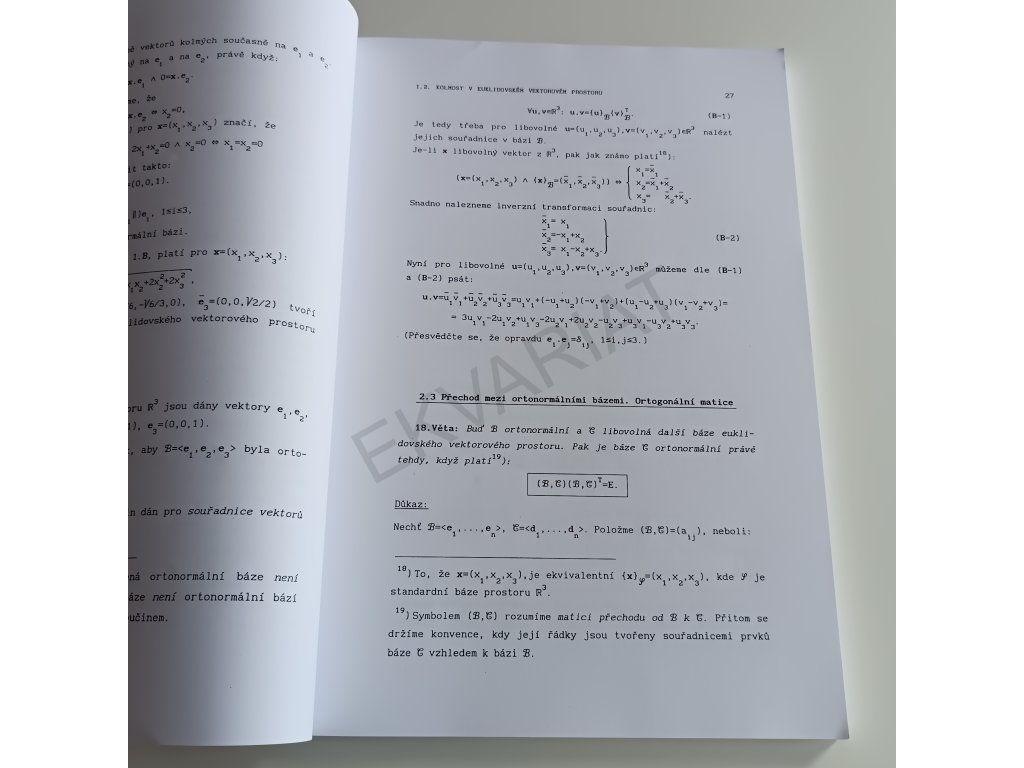 vektorů kolmých současně na e₁ a e₂
na e₁ a na e₂, právě když:
x.e₁ ∧ 0=x.e₂.
že
x.e₂ ⇔ x₂=0,
) pro x=(x₁,x₂,x₃) značí, že
2x₁+x₂=0 ∧ x₂=0 ⇔ x₁=x₂=0
takto:
=(0,0,1).
)eᵢ, 1≤i≤3,
bázi.
1.B, platí pro x=(x₁,x₂,x₃):
x₂+2x₂²+2x₃²,
-√6/3,0), ē₃=(0,0,√2/2) tvoří
vektorového prostoru
R³ jsou dány vektory e₁,e₂,
), e₃=(0,0,1).
, aby ℬ=<e₁,e₂,e₃> byla orto-
dán pro souřadnice vektorů
ortonormální báze není
není ortonormální bází
I.2. KOLMOST V EUKLIDOVSKÉM VEKTOROVÉM PROSTORU 27
∀u,v∈R³: u.v={u}ℬ{v}ℬᵀ. (B-1)
Je tedy třeba pro libovolné u=(u₁,u₂,u₃),v=(v₁,v₂,v₃)∈R³ nalézt
jejich souřadnice v bázi ℬ.
Je-li x libovolný vektor z R³, pak jak známo platí¹⁸):
x₁=x̄₁
(x=(x₁,x₂,x₃) ∧ {x}ℬ=(x̄₁,x̄₂,x̄₃)) ⇔ { x₂=x̄₁+x̄₂
x₃= x̄₂+x̄₃.
Snadno nalezneme inverzní transformaci souřadnic:
x̄₁= x₁
x̄₂=-x₁+x₂ } (B-2)
x̄₃= x₁-x₂+x₃.
Nyní pro libovolné u=(u₁,u₂,u₃),v=(v₁,v₂,v₃)∈R³ můžeme dle (B-1)
a (B-2) psát:
u.v=ū₁v̄₁+ū₂v̄₂+ū₃v̄₃=u₁v₁+(-u₁+u₂)(-v₁+v₂)+(u₁-u₂+u₃)(v₁-v₂+v₃)=
= 3u₁v₁-2u₁v₂+u₁v₃-2u₂v₁+2u₂v₂-u₂v₃+u₃v₁-u₃v₂+u₃v₃.
(Přesvědčte se, že opravdu eᵢ.eⱼ=δᵢⱼ, 1≤i,j≤3.)
2.3 Přechod mezi ortonormálními bázemi. Ortogonální matice
18.Věta: Buď ℬ ortonormální a 𝒞 libovolná další báze eukli-
dovského vektorového prostoru. Pak je báze 𝒞 ortonormální právě
tehdy, když platí¹⁹):
(ℬ,𝒞)(ℬ,𝒞)ᵀ=E.
Důkaz:
Nechť ℬ=<e₁,...,eₙ>, 𝒞=<d₁,...,dₙ>. Položme (ℬ,𝒞)=(aᵢⱼ), neboli:
¹⁸)To, že x=(x₁,x₂,x₃),je ekvivalentní {x}𝒮=(x₁,x₂,x₃), kde 𝒮 je
standardní báze prostoru R³.
¹⁹)Symbolem (ℬ,𝒞) rozumíme matici přechodu od ℬ k 𝒞. Přitom se
držíme konvence, kdy její řádky jsou tvořeny souřadnicemi prvků
báze 𝒞 vzhledem k bázi ℬ.
EKVARIAT